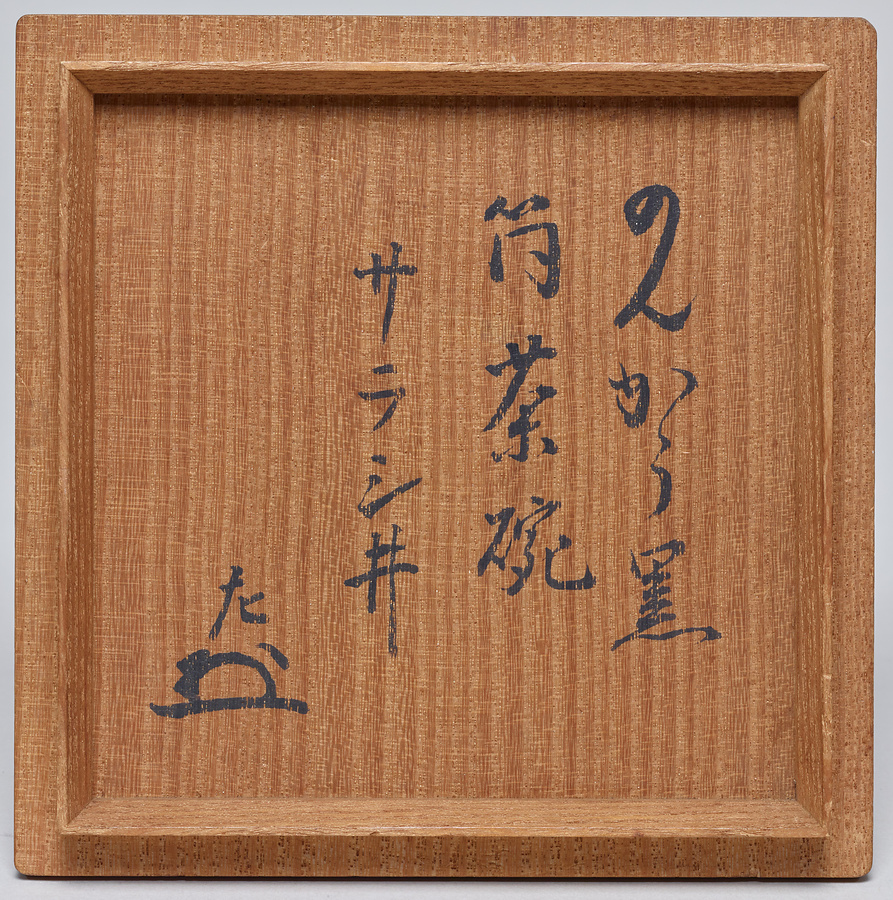 のんかう黒
筒茶碗
サラシ井
左